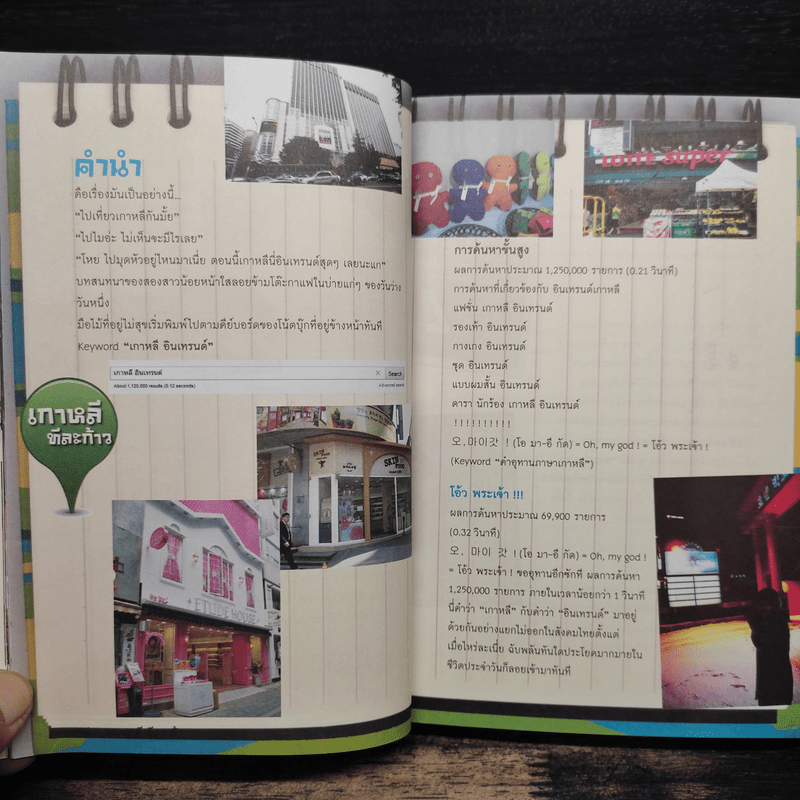 คำนำ
คือเรื่องมันเป็นอย่างนี้...
“ไปเที่ยวเกาหลีกันมั้ย”
“ไปไมอ่ะ ไม่เห็นจะมีไรเลย”
“โหย ไปมุดหัวอยู่ไหนมาเนี่ย ตอนนี้เกาหลีนี่อินเทรนด์สุดๆ เลยนะแก”
บทสนทนาของสองสาวน้อยหน้าใสลอยข้ามโต๊ะกาแฟในบ่ายแก่ๆ ของวันว่าง
วันหนึ่ง
มือไม้ที่อยู่ไม่สุขเริ่มพิมพ์ไปตามคีย์บอร์ดของโน้ตบุ๊กที่อยู่ข้างหน้าทันที
Keyword “เกาหลี อินเทรนด์”
เกาหลี อินเทรนด์ × Search
About 1,120,000 results (0.12 seconds) Advanced search
เกาหลี
ทีละก้าว
SKIN FOOD
SKIN FOOD
ETUDE HOUSE
LOTTE super
การค้นหาขั้นสูง
ผลการค้นหาประมาณ 1,250,000 รายการ (0.21 วินาที)
การค้นหาที่เกี่ยวข้องกับ อินเทรนด์เกาหลี
แฟชั่น เกาหลี อินเทรนด์
รองเท้า อินเทรนด์
กางเกง อินเทรนด์
ชุด อินเทรนด์
แบบผมสั้น อินเทรนด์
ดารา นักร้อง เกาหลี อินเทรนด์
! ! ! ! ! ! ! ! ! !
오, 마이 갓 ! (โอ มา-อี กัด) = Oh, my god ! = โอ้ว พระเจ้า !
(Keyword “คำอุทานภาษาเกาหลี”)
โอ้ว พระเจ้า !!!
ผลการค้นหาประมาณ 69,900 รายการ
(0.32 วินาที)
오, 마이 갓 ! (โอ มา-อี กัด) = Oh, my god !
= โอ้ว พระเจ้า ! ขออุทานอีกซักที ผลการค้นหา
1,250,000 รายการ ภายในเวลาน้อยกว่า 1 วินาที
นี่คำว่า “เกาหลี” กับคำว่า “อินเทรนด์” มาอยู่
ด้วยกันอย่างแยกไม่ออกในสังคมไทยตั้งแต่
เมื่อไหร่ละเนี่ย ฉับพลันทันใดประโยคมากมายใน
ชีวิตประจำวันก็ลอยเข้ามาทันที